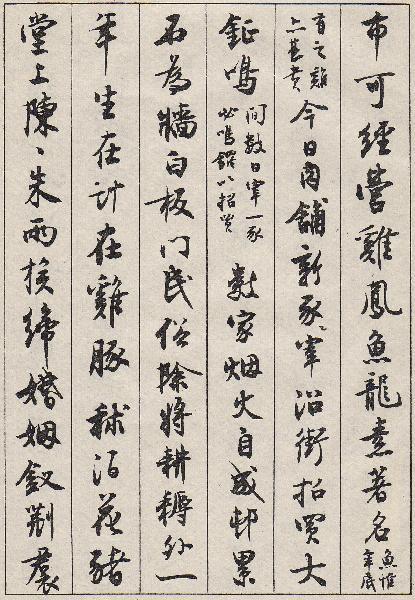 市可經營雞鳳魚龍素著名魚惟年底
有之雞甚貴今日肉舖新豕宰沿街招買大
鉦鳴間數日宰一豕必鳴鑼以招買數家烟火自成邨累
石為牆白板門民俗除將耕耨外一
年生在計在雞豚秫酒花豬
堂上陳、朱兩族締婚姻釵荊裠